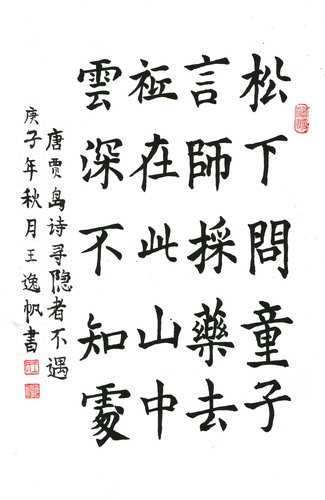 松下問童子
言師採藥去
祗在此山中
雲深不知處
唐贾岛诗寻隐者不遇
庚子年秋月王逸帆書